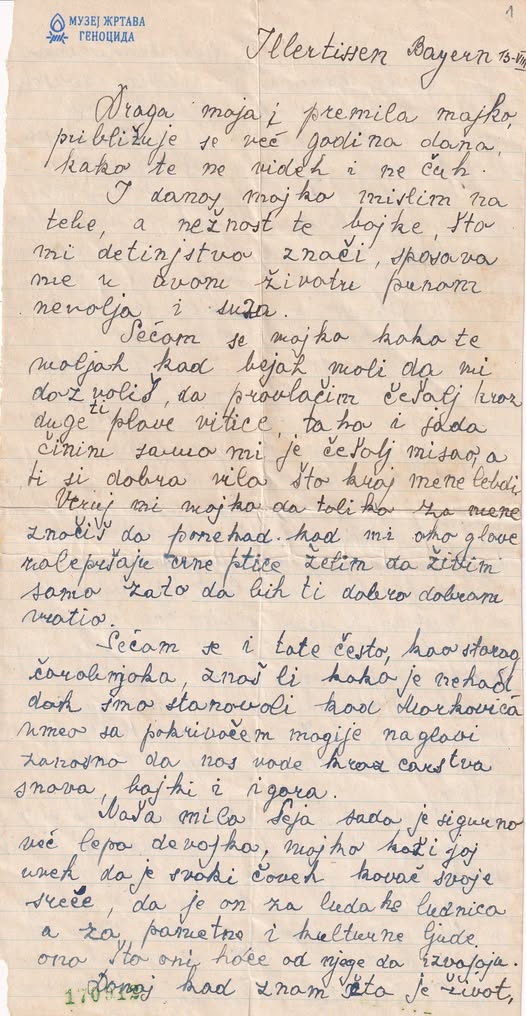 1
МУЗЕЈ ЖРТАВА
ГЕНОЦИДА
Illertissen Bayern 13-VIII
Draga moja i premila majko,
približuje se već godina dana,
kako te ne videh i ne čuh.
I danas majko mislim na
tebe, a nežnost te bajke, što
mi detinjstvo znači, spasava
me u ovom životu punom
nevolja i suza.
Sećam se majko kako te
moljah kad bejah mali da mi
dozvoliš, da provlačim češalj kroz
duge ti plave vitice, tako i sada
činim samo mi je češalj misao, a
ti si dobra vila što kraj mene lebdi.
Veruj mi majko da toliko za mene
značiš da ponekad kad mi oko glave
zalepršaju crne ptice želim da živim
samo zato da bih ti dobro dobram
vratio.
Sećam se i tate često, kao starog
čarobnjaka, znaš li kako je nekad
dok smo stanovali kod Markovića
umeo sa pokrivačem magije na glavi
zanosno da nas vode kroz carstva
snova, bajki i igara.
Naša mila Seja sada je sigurno
već lepa devojka, majko kaži joj
uvek da je svaki čovek kovač svoje
sreće, da je on za luda ko ludnica
a za pametne i kulturne ljude
ono što oni hoće od njega da izvajaju.
Danas kad znam šta je život,
170912